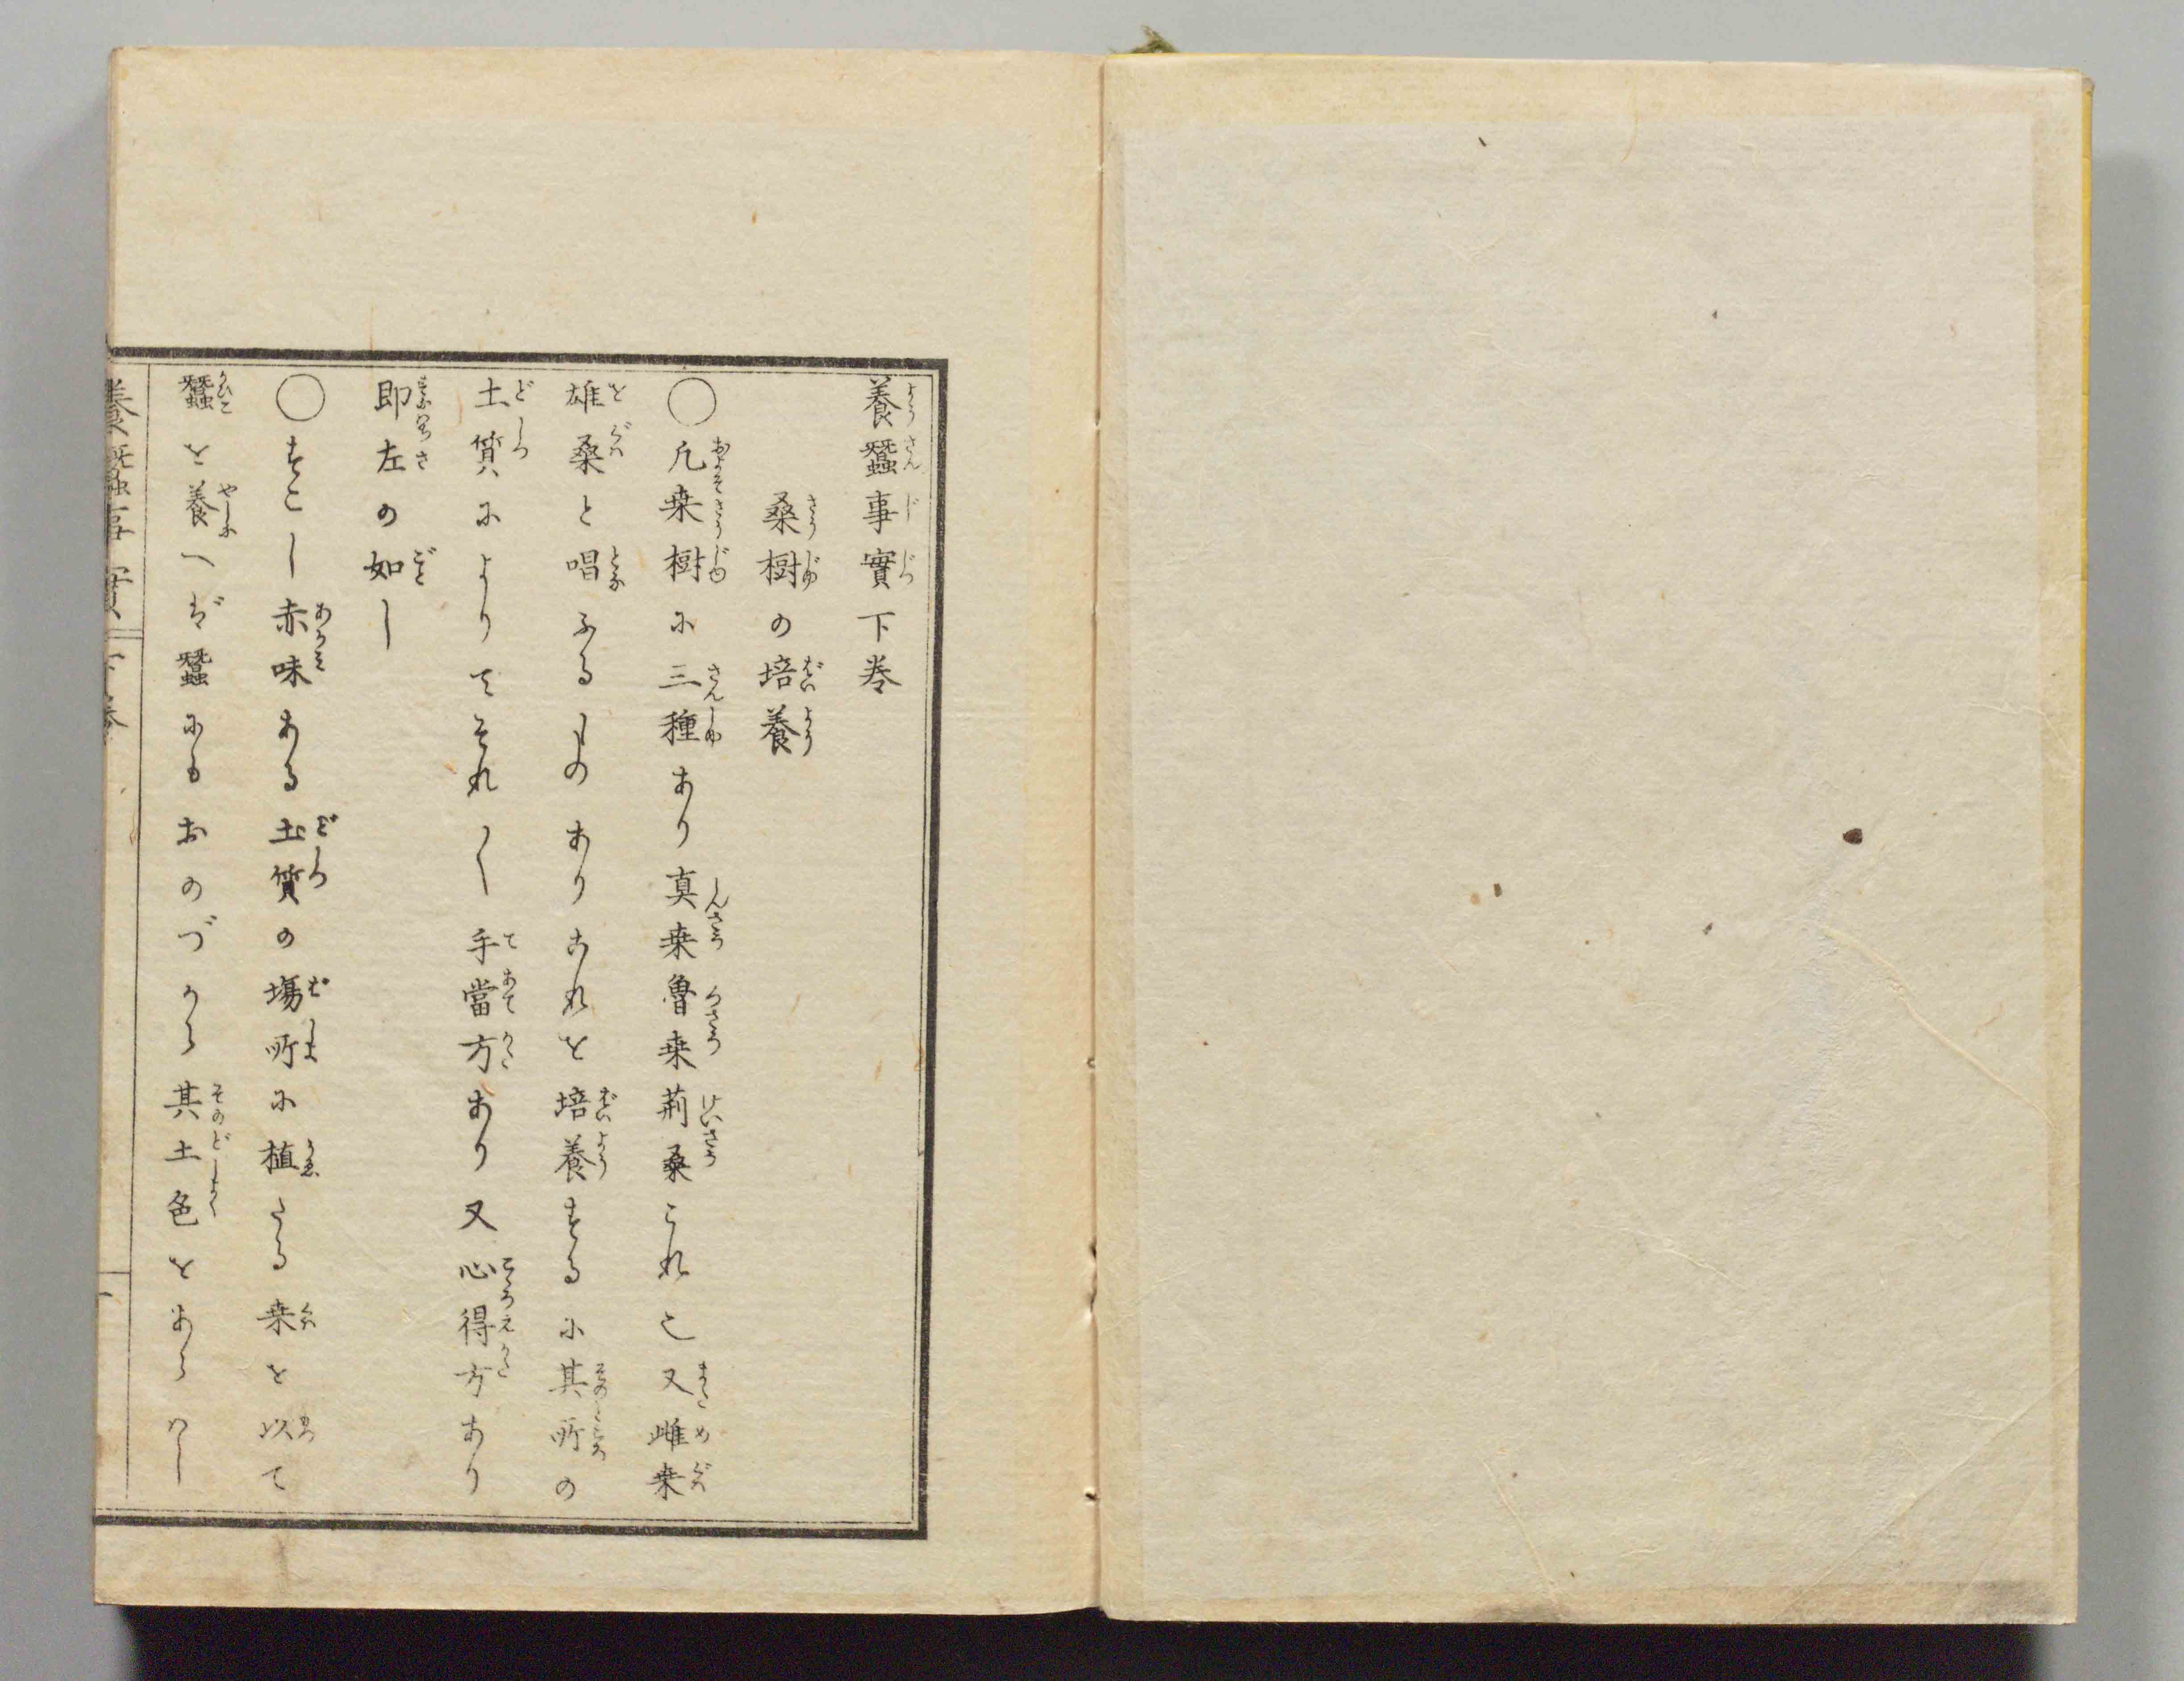 養蠶事實下巻
桑樹の培養
○凡桒樹に三種あり真桒魯桒荊桑これ也又雌桒
雄桑と唱ふるものありこれを培養するに其所の
土質によりてそれ〱手當方あり又心得方あり
即左の如し
○すこし赤味ある土質の塲所に植たる桒を以て
蠶を養へば蠶にもおのづから其土色をあらはし
養蠶事實